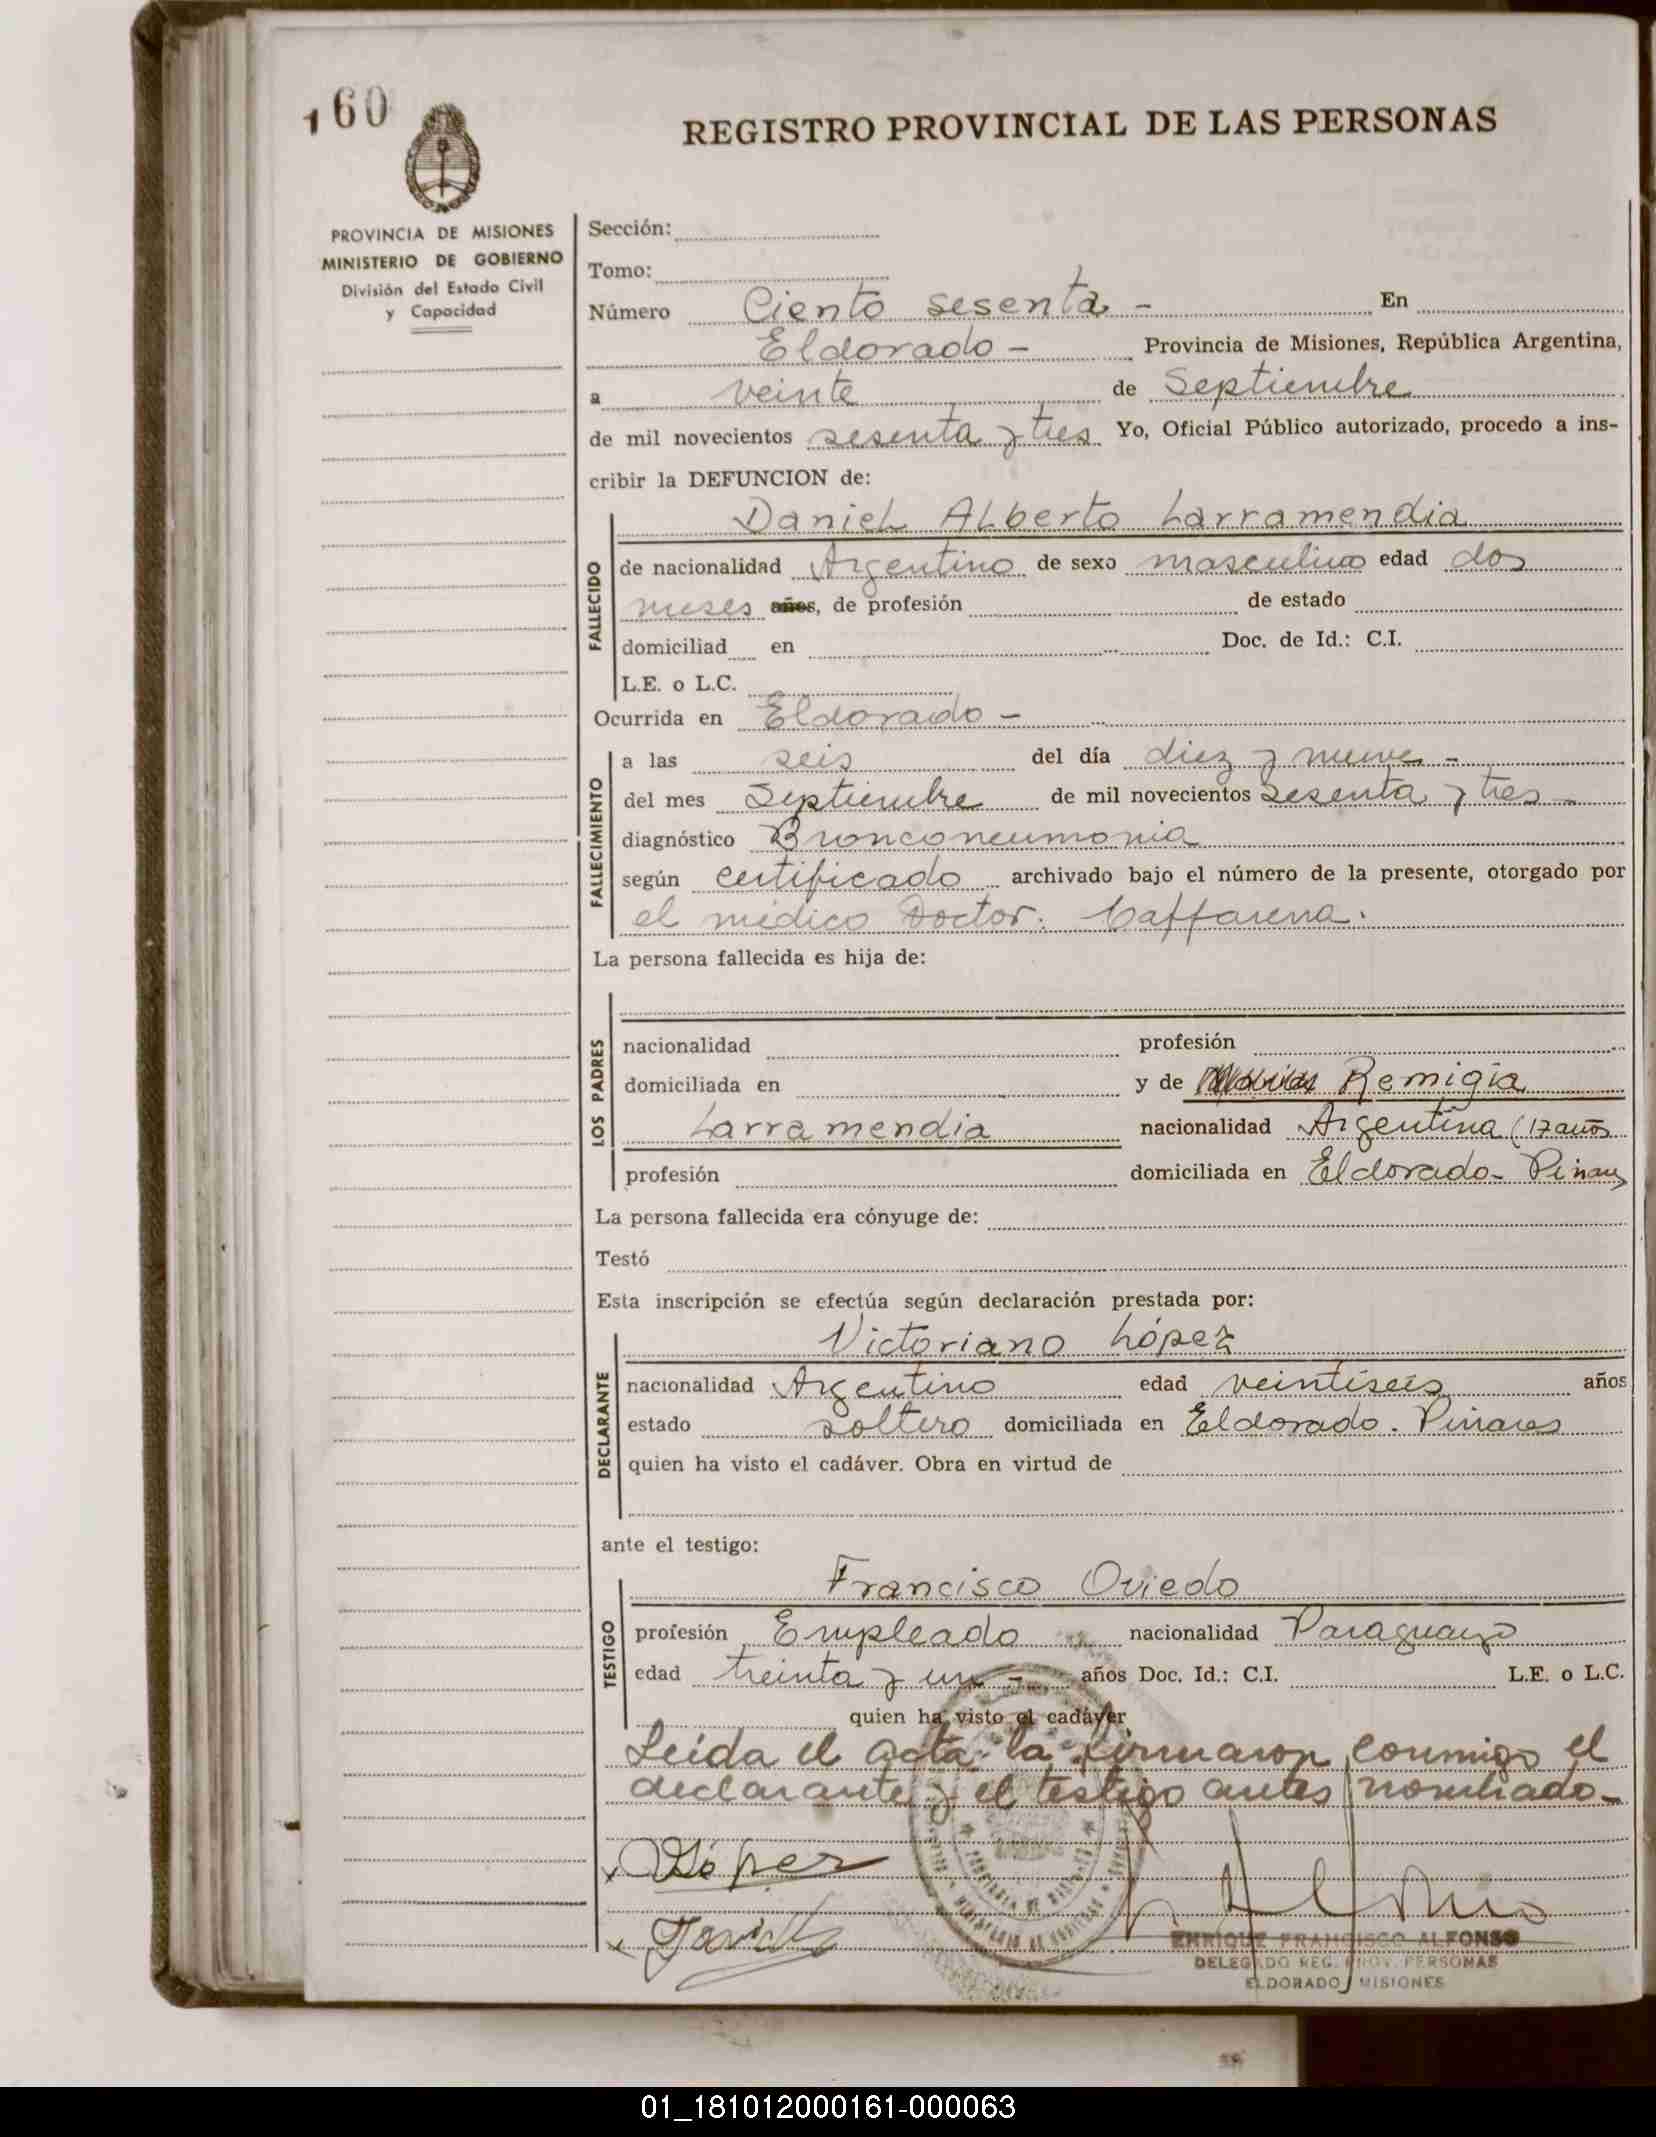 160
REGISTRO PROVINCIAL DE LAS PERSONAS
PROVINCIA DE MISIONES
MINISTERIO DE GOBIERNO
División del Estado Civil
y Capacidad
Sección:
Tomo:
Número Ciento sesenta - En
Eldorado - Provincia de Misiones, República Argentina,
a veinte de Septiembre
de mil novecientos sesenta y tres Yo, Oficial Público autorizado, procedo a ins-
cribir la DEFUNCION de:
Daniel Alberto Larramendia
FALLECIDO
de nacionalidad Argentino de sexo masculino edad dos
meses años, de profesión de estado
domiciliad en Doc. de Id.: C.I.
L.E. o L.C.
Ocurrida en Eldorado -
FALLECIMIENTO
a las seis del día diez y nueve -
del mes Septiembre de mil novecientos sesenta y tres -
diagnóstico Bronconeumonia
según certificado archivado bajo el número de la presente, otorgado por
el médico Doctor. Caffarena.
La persona fallecida es hija de:
LOS PADRES
nacionalidad profesión
domiciliada en y de Remigia
Larramendia nacionalidad Argentina (17 años
profesión domiciliada en Eldorado - Pinares
La persona fallecida era cónyuge de:
Testó
Esta inscripción se efectúa según declaración prestada por:
Victoriano López
DECLARANTE
nacionalidad Argentino edad veintiseis años
estado soltero domiciliada en Eldorado. Pinares
quien ha visto el cadáver. Obra en virtud de
ante el testigo:
Francisco Oviedo
TESTIGO
profesión Empleado nacionalidad Paraguayo
edad treinta y un - años Doc. Id.: C.I. L.E. o L.C.
quien ha visto el cadáver
Leída el acta la firmaron conmigo el
declarante y el testigo antes nombrado -
x López
x
ENRIQUE FRANCISCO ALFONSO
DELEGADO REG. PROV. PERSONAS
ELDORADO MISIONES
01_181012000161-000063